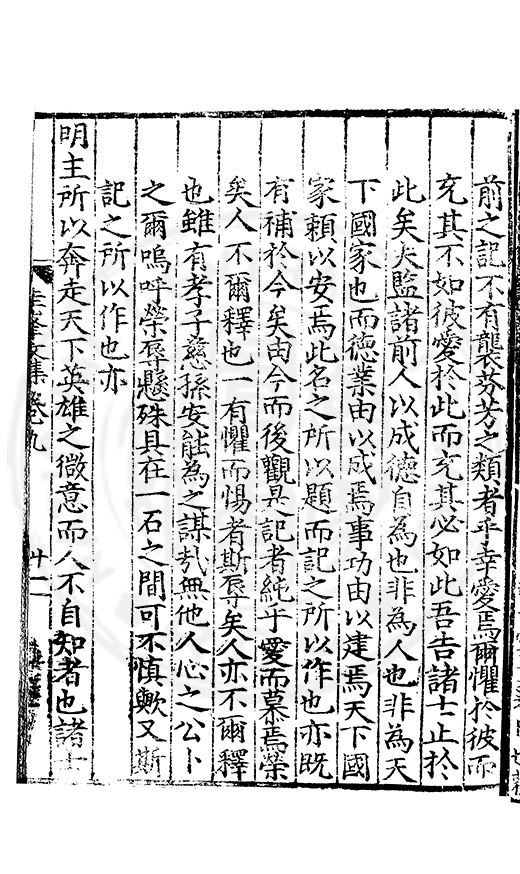 前之記不有襲芬芳之類者乎幸愛焉爾懼於彼而
充其不如彼愛於此而充其必如此吾告諸士止於
此矣夫監諸前人以成德自為也非為人也非為天
下國家也而德業由以成焉事功由以建焉天下國
家賴以安焉此名之所以題而記之所以作也亦既
有補於今矣由今而後觀是記者純乎愛而慕焉榮
矣人不爾釋也一有懼而惕者斯辱矣人亦不爾釋
也雖有孝子慈孫安能為之謀哉無他人心之公卜
之爾嗚呼榮辱懸殊具在一石之間可不慎歟又斯
記之所以作也亦
明主所以奔走天下英雄之微意而人不自知者也諸士
圭峯文集卷九
廿一